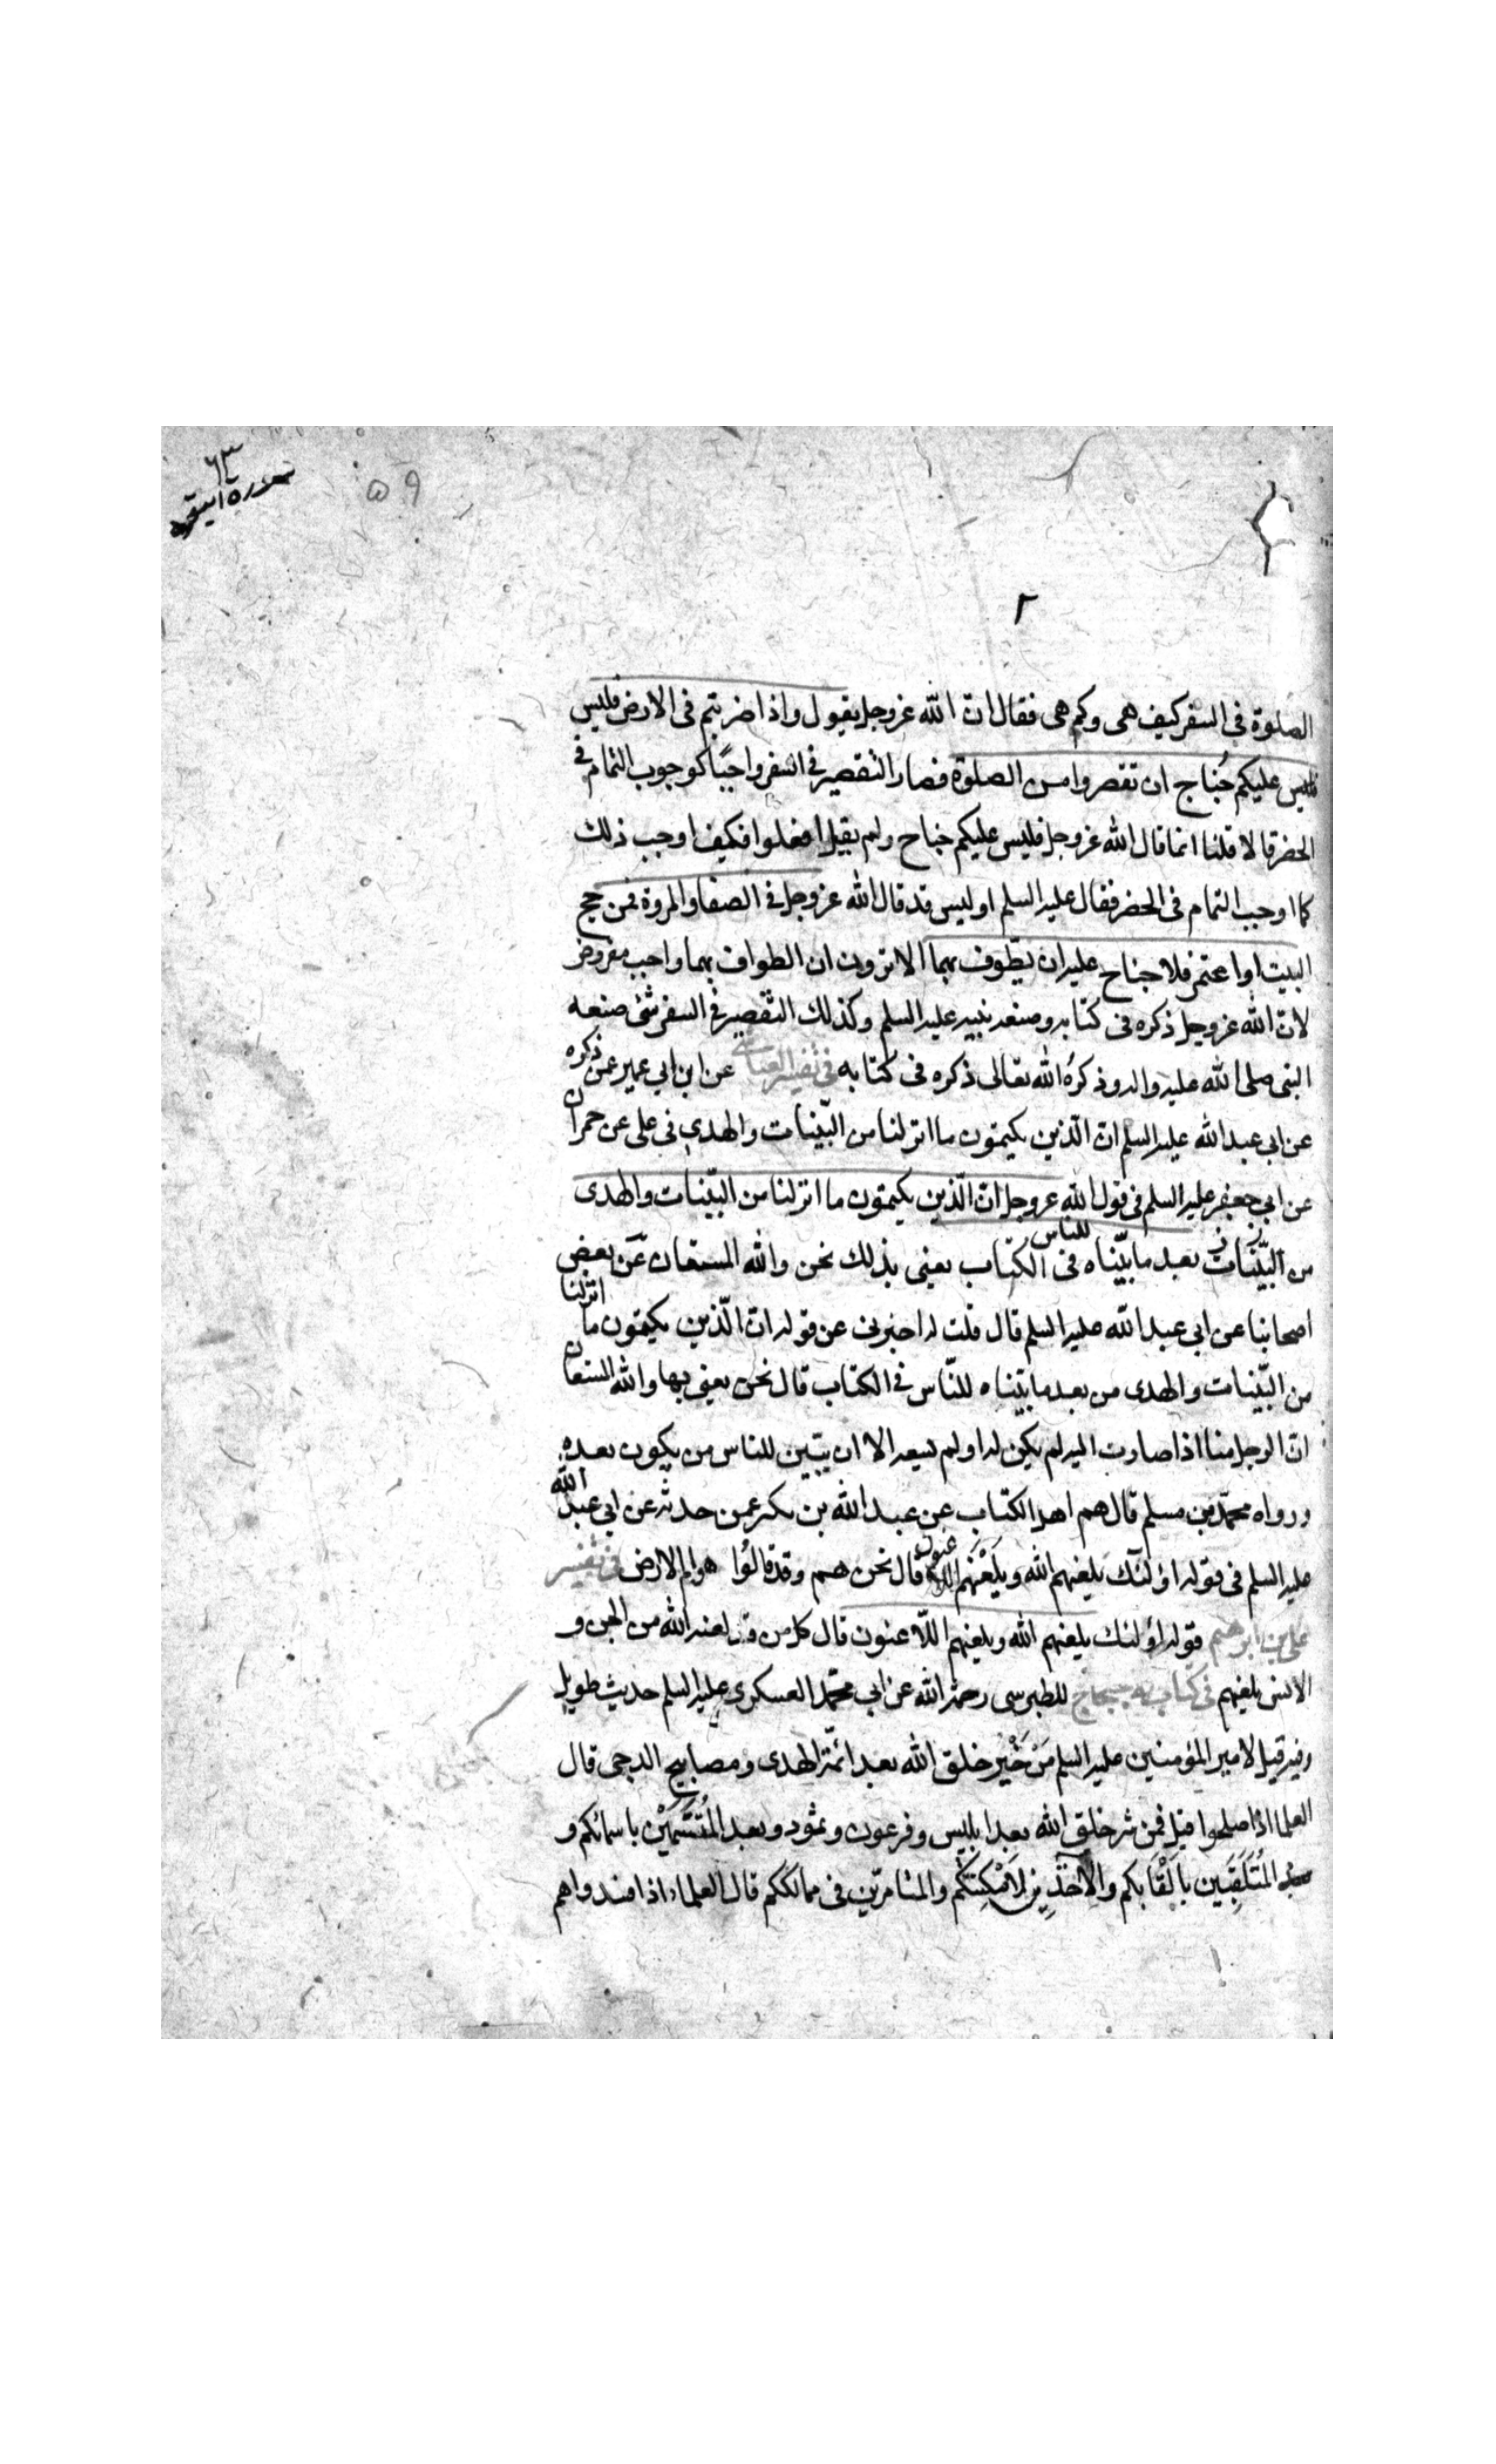 ٦٣
سورة البقرة
٥٩
٢
الصلوة فى السفر كيف هى وكم هى فقال ان الله عزوجل يقول واذا ضربتم فى الارض فليس
فليس عليكم جُناح ان تقصروا من الصلوة فصار التقصير فى السفر واجبًا كوجوب التمام فى
الحضر قالا قلنا انما قال الله عزوجل فليس عليكم جناح ولم يقل افعلوا فكيف اوجب ذلك
كما اوجب التمام فى الحضر فقال عليه السلم اوليس قد قال الله عزوجل فى الصفا والمروة فمن حج
البيت او اعتمر فلا جناح عليه ان يطّوف بهما الا ترون ان الطواف بهما واجب مفروض
لان الله عزوجل ذكره فى كتابه وصنعه نبيه عليه السلم وكذلك التقصير فى السفر شئ صنعه
النبى صلى الله عليه واله وذكرُه الله تعالى ذكره فى كتابه فى تفسير العياشى عن ابن ابي عمير عمن ذكره
عن ابي عبد الله عليه السلم ان الّذين يكتمون ما انزلنا من البيّنات والهدى فى على عن حمران
عن ابي جعفر عليه السلم فى قول الله عزوجل ان الّذين يكتمون ما انزلنا من البيّنات والهدى
من البيّنات بعد ما بيّناه للناس فى الكتاب يعنى بذلك نحن والله المستعان عَن بعض
اصحابنا عن ابى عبد الله عليه السلم قال قلت له اخبرنى عن قوله ان الّذين يكتمون ما انزلنا
من البيّنات والهدى من بعد ما بيّناه للنّاس فى الكتاب قال نحن يعنى بها والله المستعان
انّ الرجل منا اذا صارت اليه لم يكن له او لم يسعه الا ان يبيّن للناس من يكون بعده
ورواه محمّد بن مسلم قال هم اهل الكتاب عن عبد الله بن بكير عمن حدثه عن ابي عبد الله
عليه السلم فى قوله اولئك يلعنهم الله ويَلْعَنُهم اللاعنون قال نحن هم وقد قالُوا هوام الارض فى تفسير
على بن ابرهيم قوله اولئك يلعنهم الله ويلعنهم اللّاعنون قال كل من قد لعنه الله من الجن و
الانس يلعنهم فى كتاب الاحتجاج للطبرسى رحمه الله عن ابي محمّد العسكرى عليه السلم حديث طويل
وفيه قيل لامير المؤمنين عليه السلم مَنْ خَيْر خلق الله بعد ائمّة الهدى ومصابيح الدجى قال
العلما اذا صلحوا قيل فمن شر خلق الله بعد ابليس وفرعون وثمود وبعد المُتَسَمّيْن باسمائكم و
المُتَلَقِّبَين بِالْقَابِكم والآخذين لِاَمْكِنَتِكُم والمتامّرين فى ممالككم قال العلماء اذا فسدوا هم